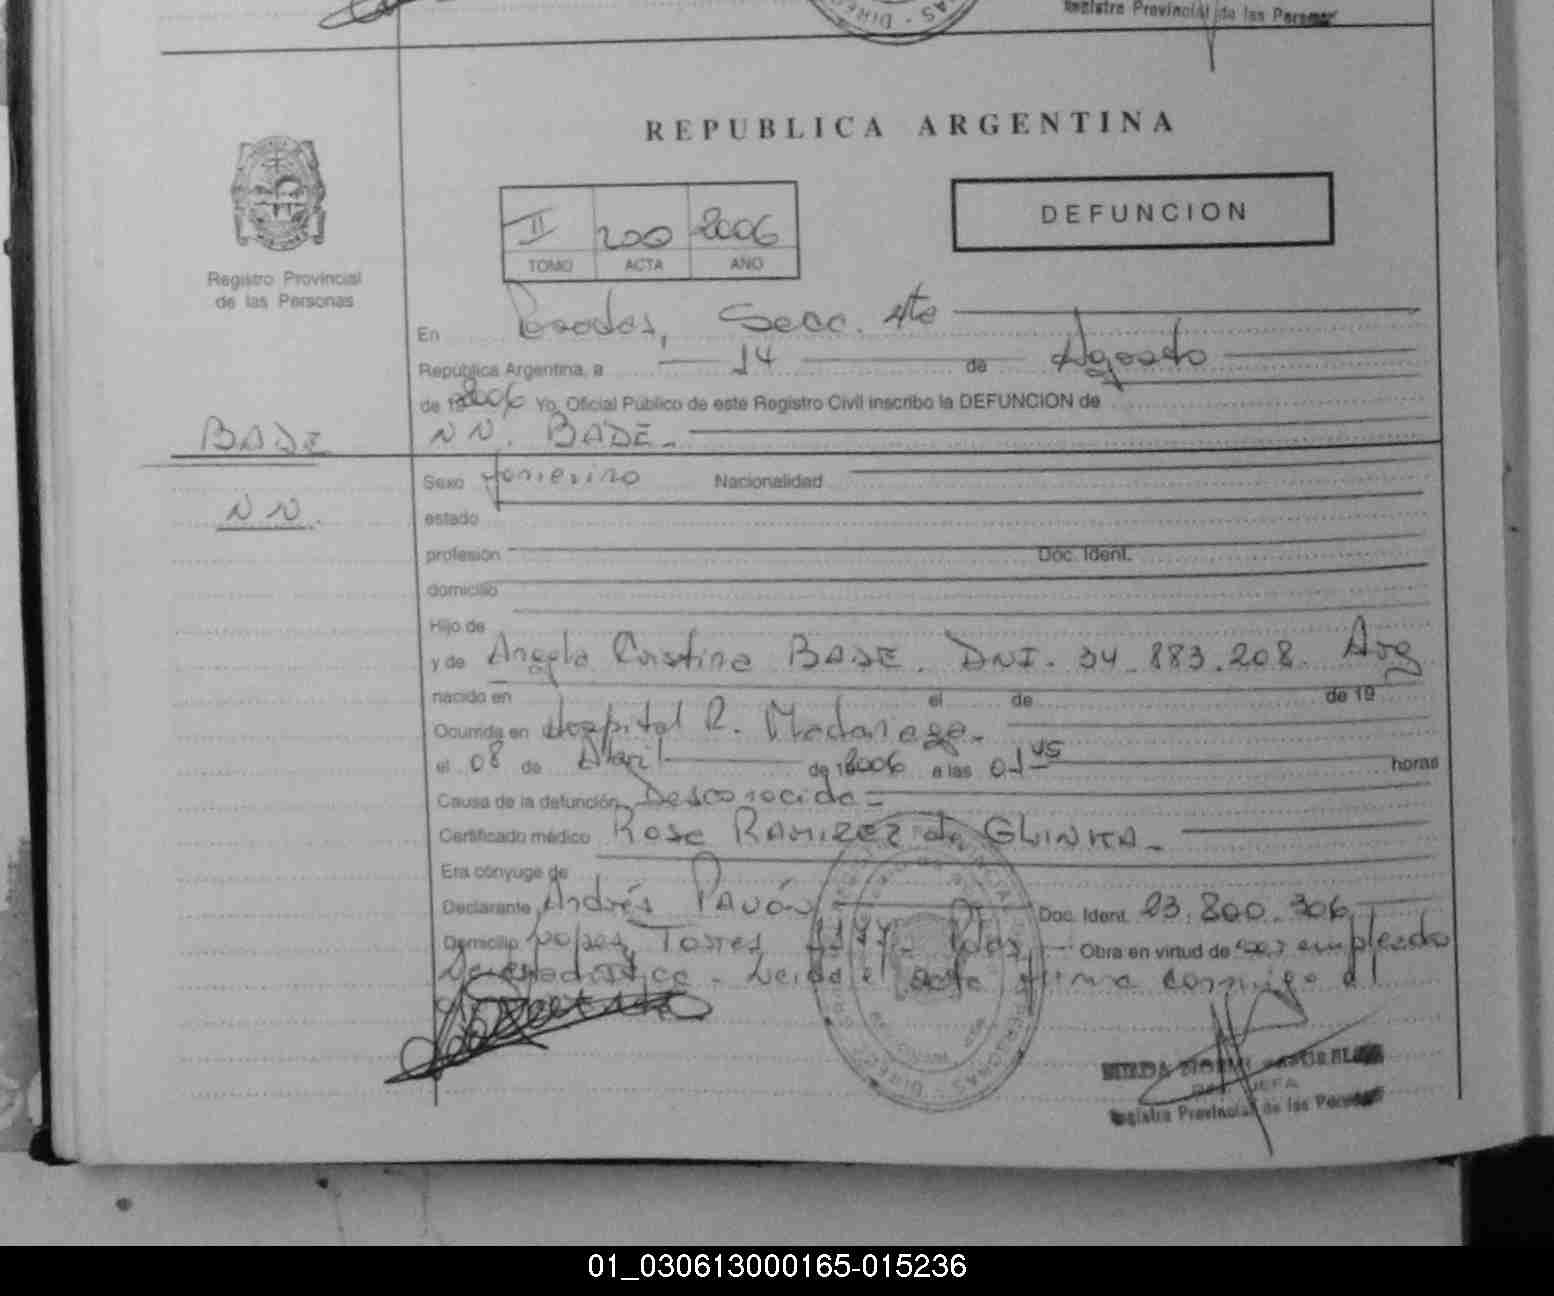 Registro Provincial de las Personas
REPUBLICA ARGENTINA
DEFUNCION
II 200 2006
TOMO ACTA AÑO
Registro Provincial
de las Personas
En Posadas, Secc. 4ta
República Argentina, a 14 de Agosto
de 19 2006 Yo, Oficial Público de este Registro Civil inscribo la DEFUNCION de
BADE
NN. BADE.
NN.
Sexo femenino Nacionalidad
estado
profesión Doc. Ident.
domicilio
Hijo de
y de Angela Cristina BADE. DNI. 34.883.208. Arg
nacido en el de de 19
Ocurrida en Hospital R. Madariaga.
el 08 de Abril de 2006 a las 01 45 horas
Causa de la defunción Desconocida
Certificado médico Rosa RAMIREZ de GLINKA.
Era cónyuge de
Declarante Andrés PAVÓN Doc. Ident. 23.800.306
Domicilio López Torres Pdas. Obra en virtud de ser empleado
de estadística. Leida el acta firma conmigo el
JEFA
Registro Provincial de las Personas
01_030613000165-015236